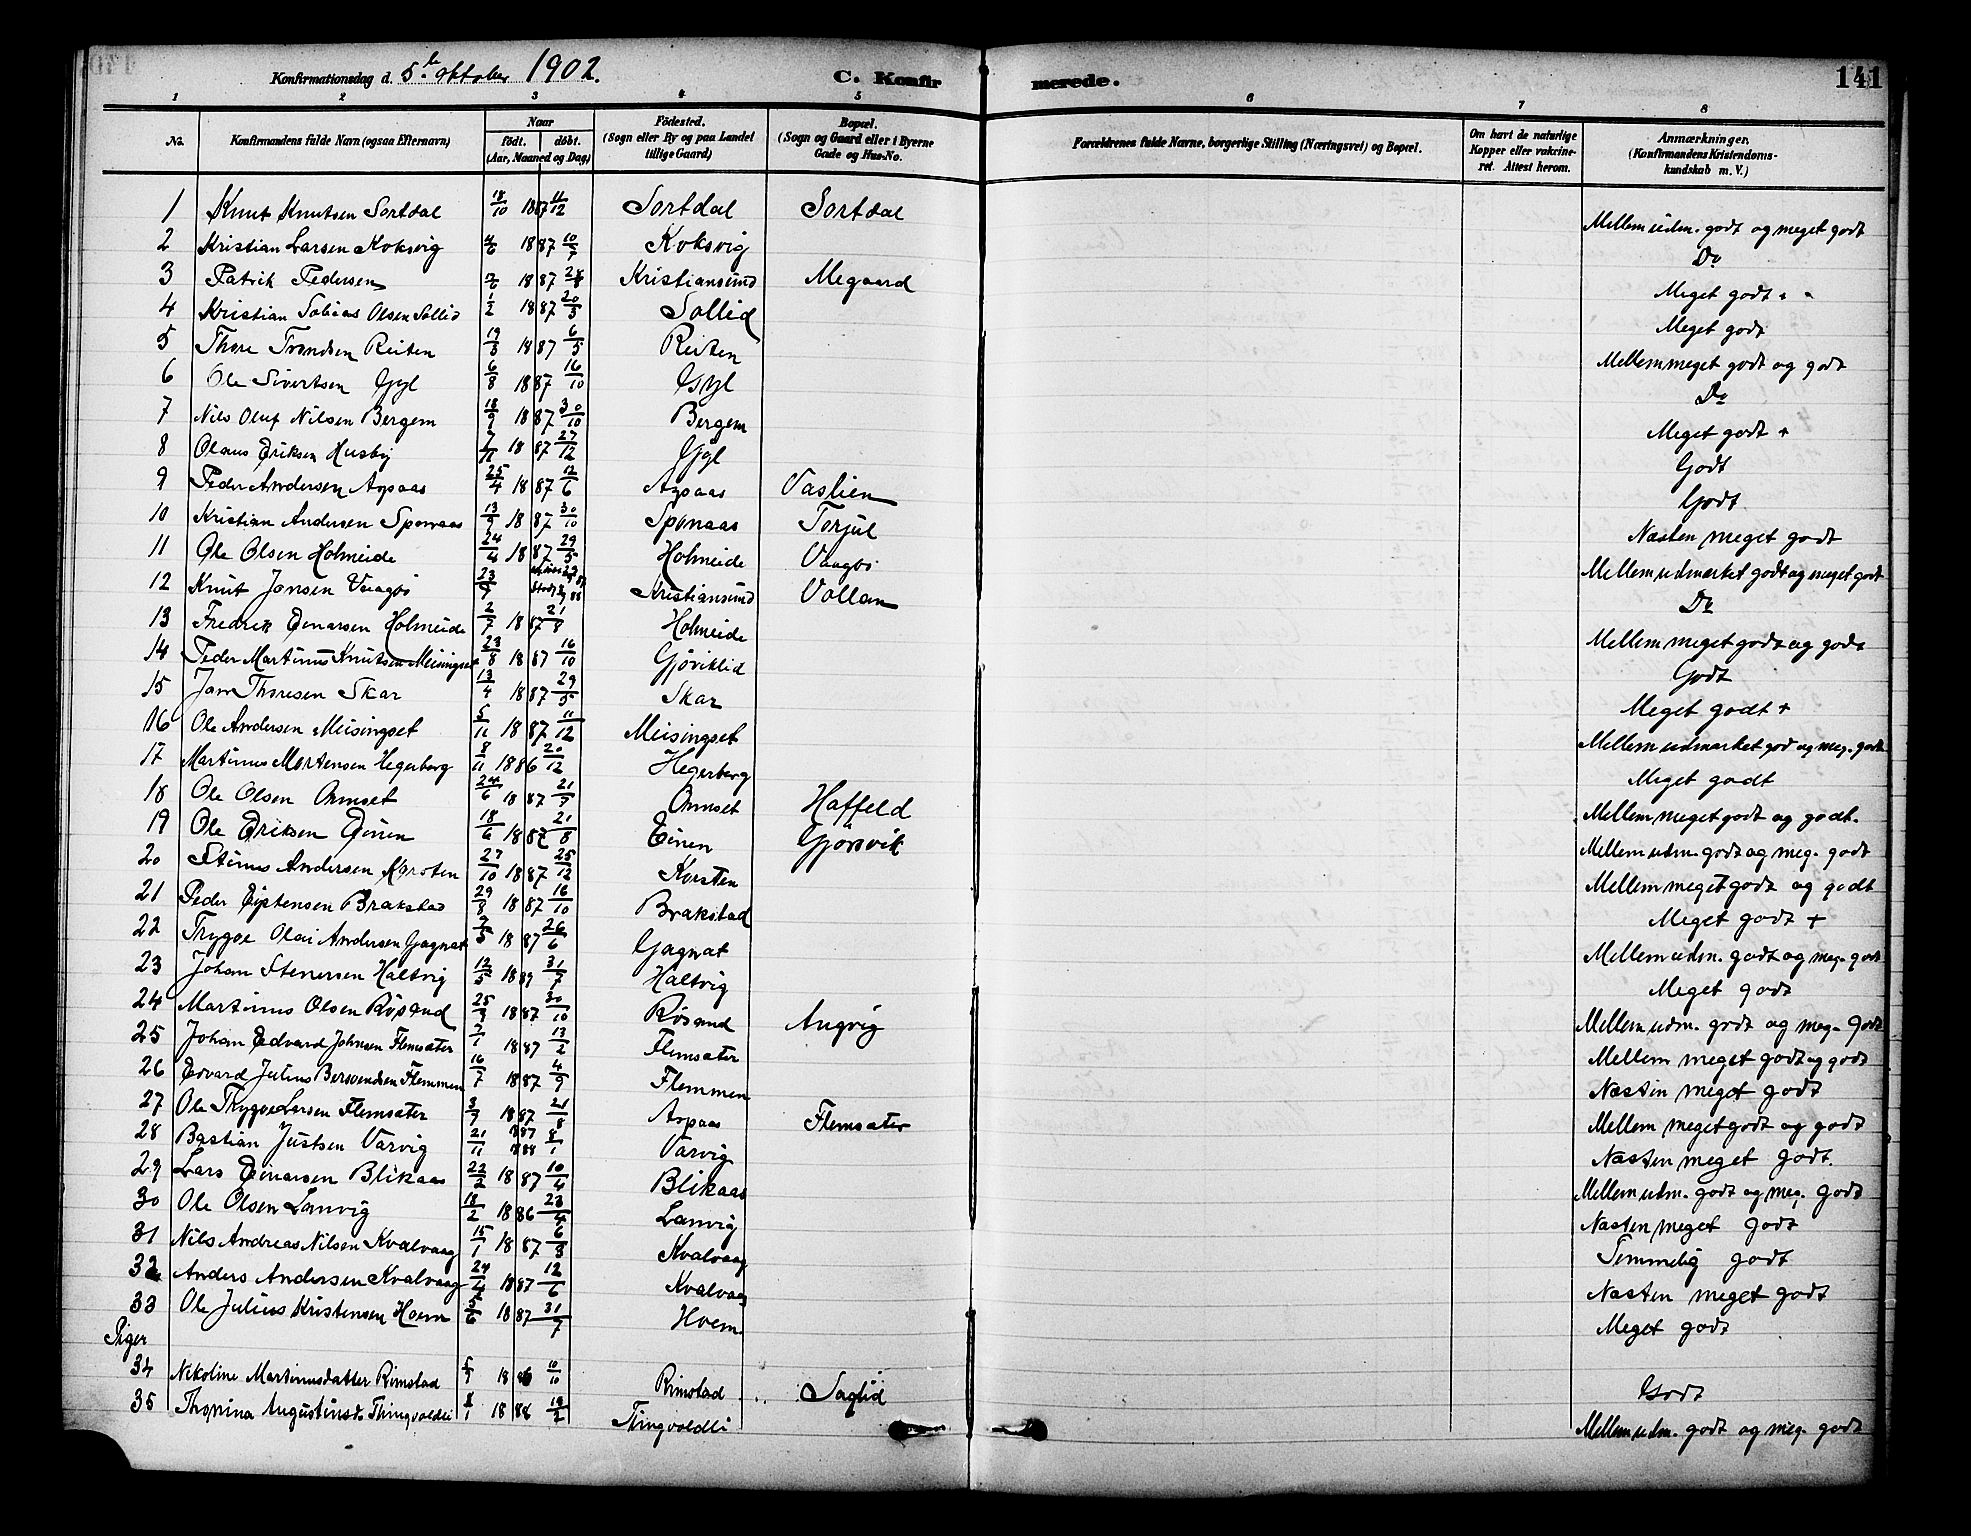 Konfirmationsdag d. 5te oktober 1902.
C. Konfirmerede.
141
1 2 3 4 5 6 7 8
No. Konfirmandens fulde Navn (ogsaa Efternavn) Naar født. døbt. (Aar, Maaned og Dag) Fødested. (Sogn eller By og paa Landet tillige Gaard) Bopæl. (Sogn og Gaard eller i Byerne Gade og Hus-No. Forældrenes fulde Navne, borgerlige Stilling (Næringsvei) og Bopæl. Om havt de naturlige Kopper eller vakcineret. Attest herom. Anmærkninger. (Konfirmandens Kristendomskundskab m. V.)
1 Knut Knutsen Sortdal 18/10 1887 11/12 Sortdal Sortdal Mellem udm. godt og meget godt
2 Kristian Larsen Koksvig 4/6 1887 10/7 Koksvig Do
3 Patrik Pedersen 1887 Kristiansund Megaard Meget godt
4 Kristian Tobias Olsen Sollid 1/2 1887 20/3 Sollid Meget godt
5 Thore Trondsen Reiten 19/3 1887 6/5 Reiten Mellem meget godt og godt
6 Ole Sivertsen Gyl 6/8 1887 16/10 Gyl Do
7 Nils Oluf Nilsen Bergem 18/9 1887 30/10 Bergem Meget godt +
8 Olaus Eriksen Husby 7/11 1887 27/12 Gyl Godt
9 Peder Andersen Aspaas 25/4 1887 12/6 Aspaas Vaslien Godt
10 Kristian Andersen Sponaas 13/9 1887 30/10 Sponaas Torjul Næsten meget godt
11 Ole Olsen Holmeide 24/4 1887 29/5 Holmeide Vaagbø Mellem udmærket godt og meget godt
12 Knut Jonsen Vaagbø 23/9 Kristiansund Vollan Do
13 Fredrik Einarsen Holmeide 2/7 1887 21/8 Holmeide Mellem meget godt og godt
14 Peder Martinus Knutsen Meisingset 23/8 1887 16/10 Gjøviklid Godt
15 Jon Thoresen Skar 13/4 1887 29/5 Skar Meget godt +
16 Ole Andersen Meisingset 5/11 1887 11/12 Meisingset Mellem udmærket god og meg. godt
17 Martinus Mortensen Hegerberg 8/11 1886 20/12 Hegerberg Meget godt
18 Ole Olsen Ormset 24/6 1887 21/7 Ormset Haffeld Mellem meget godt og godt.
19 Ole Eriksen Einen 18/6 1887 21/8 Einen Gjørsvik Mellem udm. godt og meg. godt
20 Stinus Andersen Korsten 27/10 1887 25/12 Korsten Mellem meget godt og godt
21 Peder Eistensen Brakstad 29/8 1887 16/10 Brakstad Meget godt +
22 Trygve Olai Andersen Gagnat 7/5 1887 26/6 Gagnat Mellem udm. godt og meg. godt
23 Johan Stenersen Haltvig 12/5 31/7 Haltvig Meget godt
24 Martinus Olsen Røsand 1887 30/10 Røsand Angvig Mellem udm. godt og meg. Godt
25 Johan Edvard Johnsen Flemsæter 7/1 1887 13/2 Flemsæter Mellem meget godt og godt
26 Edvard Julius Bersvendsen Flemmen 16/7 1887 4/9 Flemmen Næsten meget godt
27 Ole Trygve Larsen Flemsæter 3/7 1887 21/8 Aspaas Flemsæter Mellem meget godt og godt
28 Bastian Justsen Varvig 21/11 1887 1888 8/1 Varvig Næsten meget godt.
29 Lars Einarsen Blikaas 22/2 1887 10/4 Blikaas Mellem udm. godt og meg. godt
30 Ole Olsen Lanvig 18/2 1886 23/4 Lanvig Næsten meget godt
31 Nils Andreas Nilsen Kvalvaag 15/1 1887 6/3 Kvalvaag Temmelig godt
32 Anders Andersen Kvalvaag 24/4 1887 12/6 Kvalvaag Næsten meget godt
33 Ole Julius Kristensen Hoem 5/6 1887 31/7 Hoem Meget godt
Piger
34 Nikoline Martinusdatter Rimstad 1886 10/10 Rimstad Saglid Godt
35 Augustinsd. Thingvoldli Thingvoldli Mellem udm. godt og meg. godt